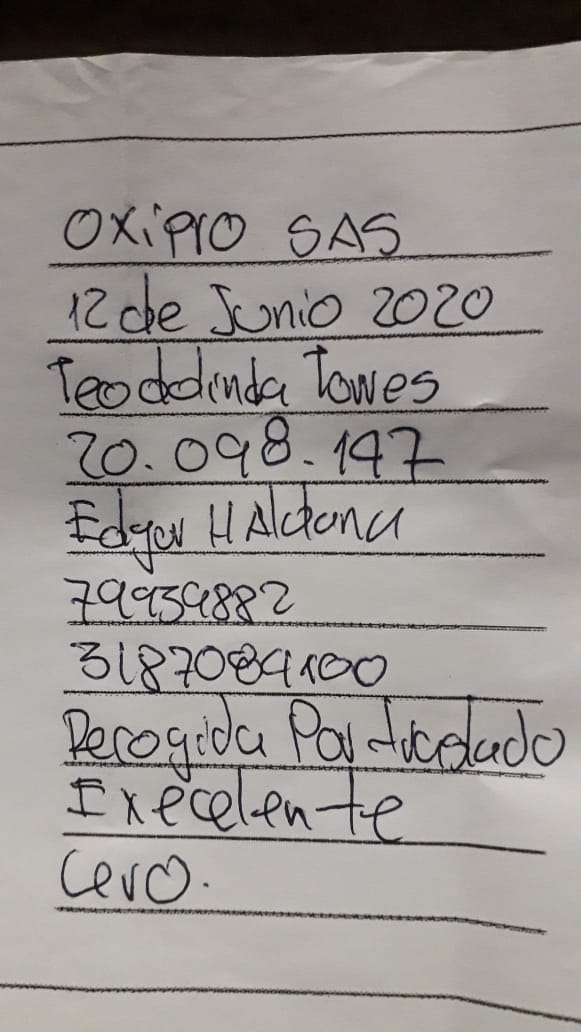 OXiPrO SAS
12 de Junio 2020
Teoddinda Torres
20.098.147
Edgar H Aldana
79939882
3187084100
Recogida Por trasdado
Execelente
Cero.